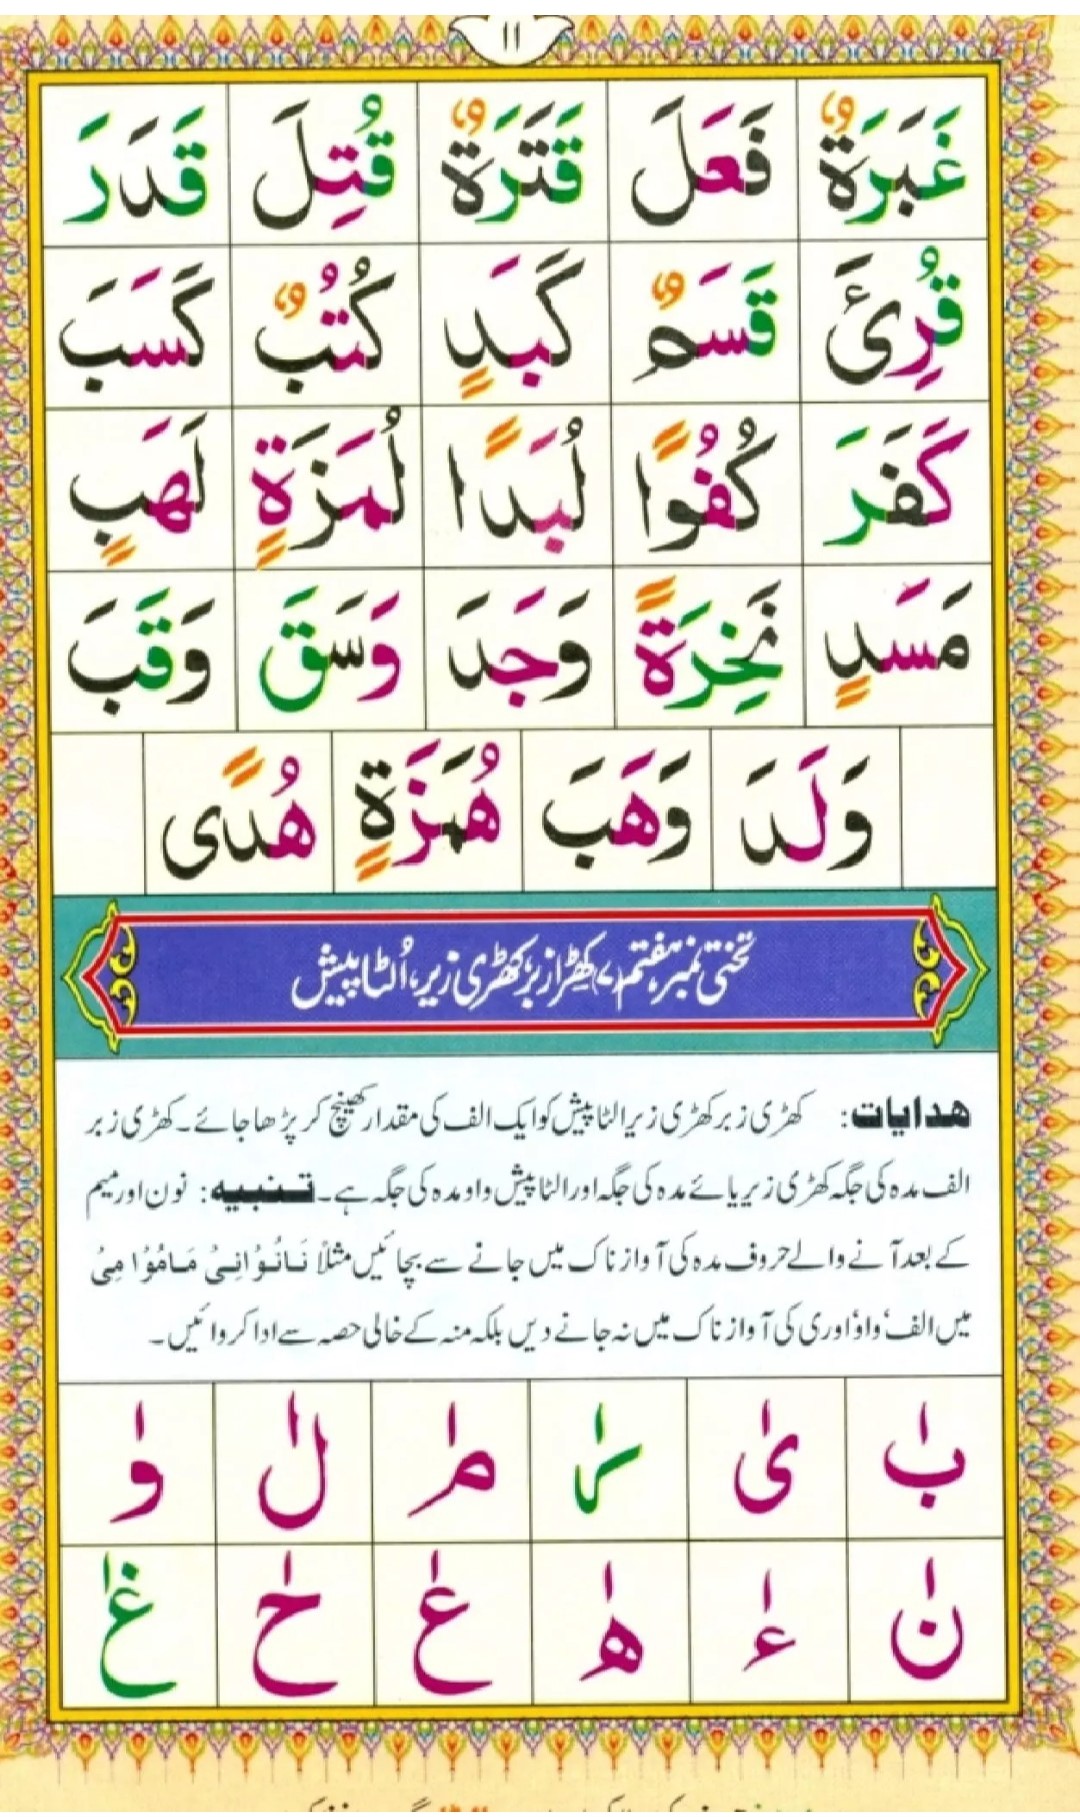 ۱۱
غَبَرَةٌ فَعَلَ قَتَرَةٌ قُتِلَ قَدَرَ
قُرِئَ قَسَمٌ كَبَدٍ كُتُبٌ كَسَبَ
كَفَرَ كُفُوًا لُبَدًا لُمَزَةٍ لَهَبٍ
مَسَدٍ نَخِرَةً وَجَدَ وَسَقَ وَقَبَ
وَلَدَ وَهَبَ هُمَزَةٍ هُدًى
تختی نمبر ہفتم (۷) کھڑا زبر، کھڑی زیر، اُلٹا پیش
ھدایات: کھڑی زبر کھڑی زیر الٹا پیش کو ایک الف کی مقدار کھینچ کر پڑھا جائے۔ کھڑی زبر
الف مدہ کی جگہ کھڑی زیر یائے مدہ کی جگہ اور الٹا پیش واو مدہ کی جگہ ہے۔ تنبیہ: نون اور میم
کے بعد آنے والے حروف مدہ کی آواز ناک میں جانے سے بچائیں مثلاً نَانُوْا نِیْ مَامُوْا مِیْ
میں الف، واؤ اور ی کی آواز ناک میں نہ جانے دیں بلکہ منہ کے خالی حصہ سے ادا کروائیں۔
بٰ یٰ رٰ مٰ لٰ وٰ
نٰ ءٰ هٰ عٰ حٰ غٰ